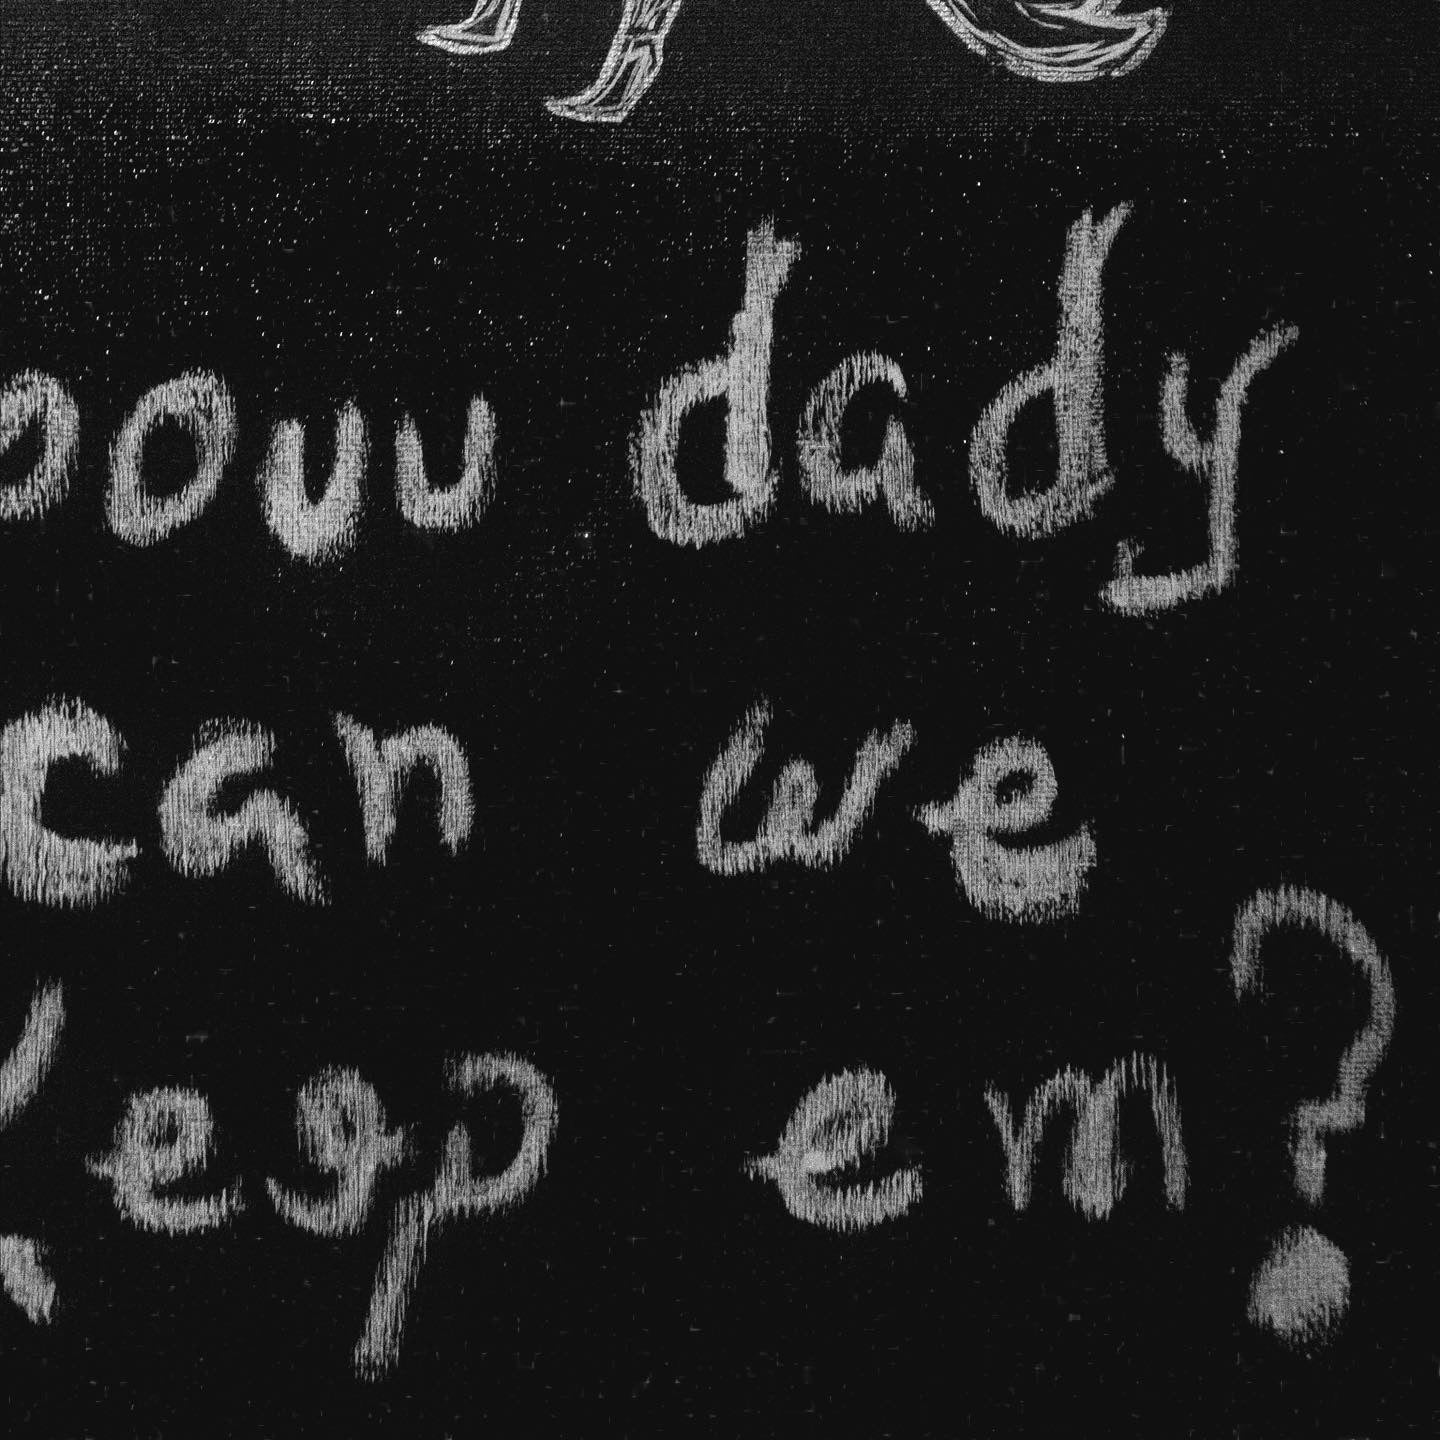 oouu dady
can we
keep em?